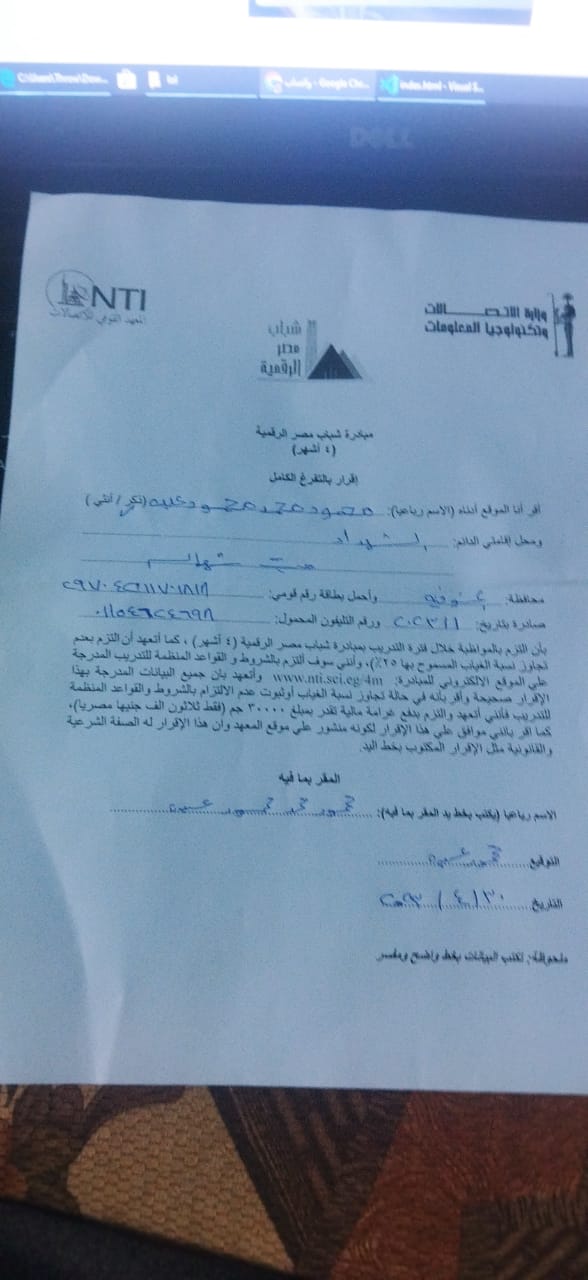 C:\Users\
Google Ch...
index.html - Visual S...
DELL
NTI
المعهد القومي للاتصالات
وزارة الاتصالات
وتكنولوجيا المعلومات
شباب
مصر
الرقمية
مبادرة شباب مصر الرقمية
(٤ أشهر)
إقرار بالتفرغ الكامل
أقر أنا الموقع أدناه (الاسم رباعيا): محمود محمد محمود (ذكر / أنثي)
ومحل إقامتي الدائم: الشهداء
محافظة: منوفيه وأحمل بطاقة رقم قومي:
صادرة بتاريخ: ورقم التليفون المحمول:
بأن التزم بالمواظبة خلال فترة التدريب بمبادرة شباب مصر الرقمية (٤ أشهر) ، كما أتعهد أن التزم بعدم
تجاوز نسبة الغياب المسموح بها ٢٥٪، وأنني سوف ألتزم بالشروط و القواعد المنظمة للتدريب المدرجة
علي الموقع الالكتروني للمبادرة: www.nti.sci.eg/4m وأتعهد بان جميع البيانات المدرجة بهذا
الإقرار صحيحة وأقر بأنه في حالة تجاوز نسبة الغياب أوثبوت عدم الالتزام بالشروط والقواعد المنظمة
للتدريب فأنني أتعهد والتزم بدفع غرامة مالية تقدر بمبلغ ٣٠٠٠٠ جم (فقط ثلاثون الف جنيها مصريا)،
كما اقر بانني موافق علي هذا الإقرار لكونه منشور علي موقع المعهد وان هذا الإقرار له الصفة الشرعية
والقانونية مثل الإقرار المكتوب بخط اليد.
المقر بما فيه
الاسم رباعيا (يكتب بخط يد المقر بما فيه): محمود محمد محمود
التوقيع محمود
التاريخ ٣٠/٤/
ملحوظة: تكتب البيانات بخط واضح ومفسر